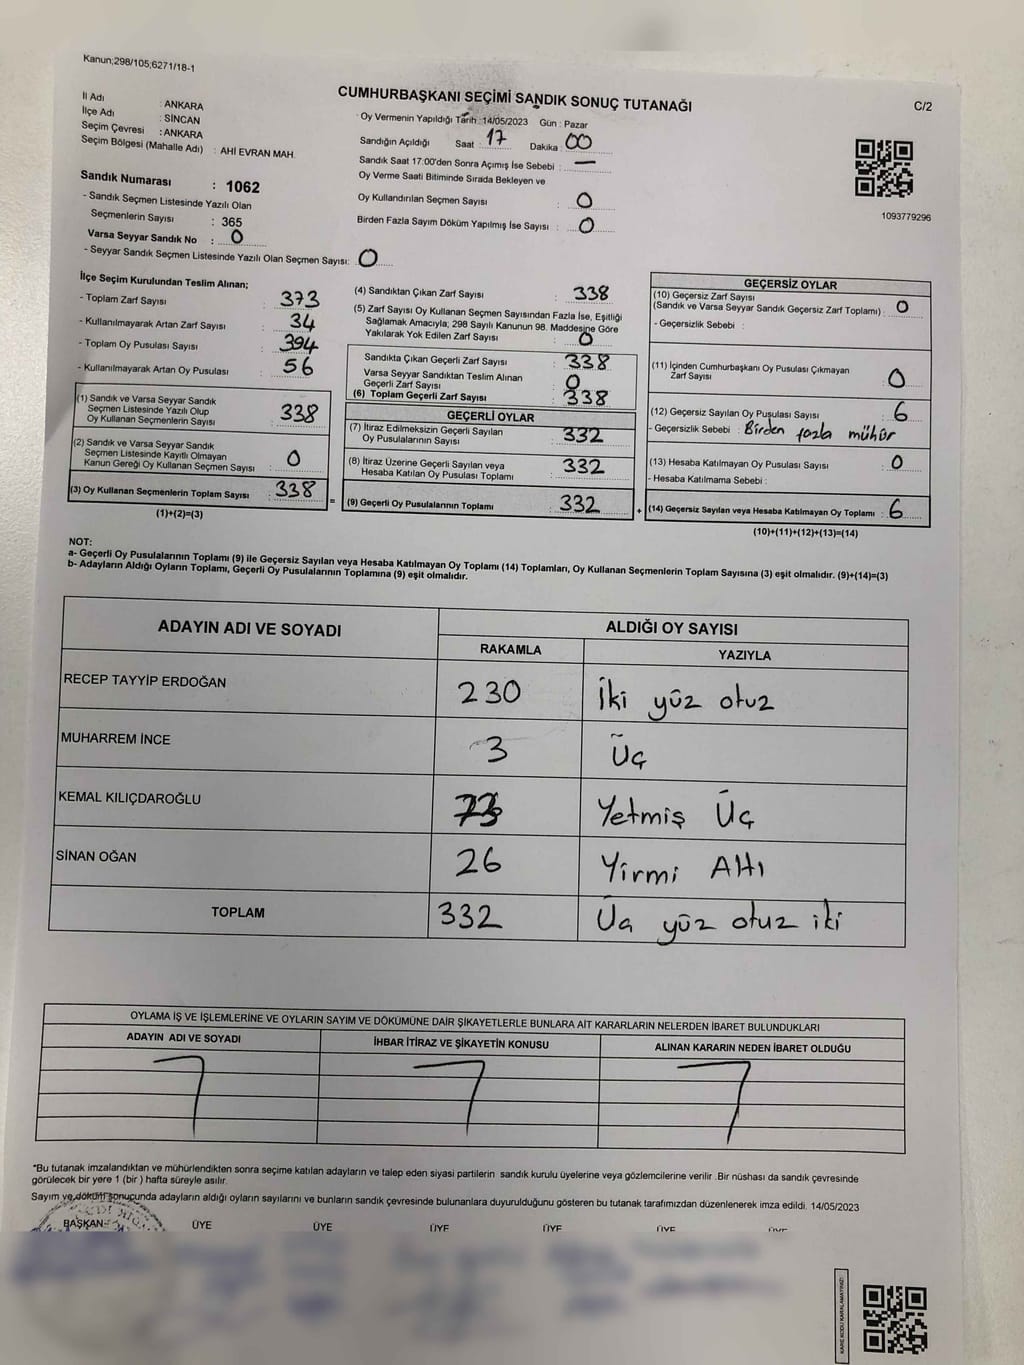 Kanun;298/105;6271/18-1
CUMHURBAŞKANI SEÇİMİ SANDIK SONUÇ TUTANAĞI
C/2
İl Adı : ANKARA
İlçe Adı : SİNCAN
Seçim Çevresi : ANKARA
Seçim Bölgesi (Mahalle Adı) : AHİ EVRAN MAH.
Sandık Numarası : 1062
- Sandık Seçmen Listesinde Yazılı Olan
Seçmenlerin Sayısı : 365
Varsa Seyyar Sandık No : 0
- Seyyar Sandık Seçmen Listesinde Yazılı Olan Seçmen Sayısı: 0
Oy Vermenin Yapıldığı Tarih : 14/05/2023 Gün : Pazar
Sandığın Açıldığı Saat : 17 Dakika : 00
Sandık Saat 17:00'den Sonra Açımış İse Sebebi : —
Oy Verme Saati Bitiminde Sırada Bekleyen ve
Oy Kullandırılan Seçmen Sayısı : 0
Birden Fazla Sayım Döküm Yapılmış İse Sayısı : 0
1093779296
İlçe Seçim Kurulundan Teslim Alınan;
- Toplam Zarf Sayısı : 373
- Kullanılmayarak Artan Zarf Sayısı : 34
- Toplam Oy Pusulası Sayısı : 394
- Kullanılmayarak Artan Oy Pusulası : 56
(1) Sandık ve Varsa Seyyar Sandık
Seçmen Listesinde Yazılı Olup
Oy Kullanan Seçmenlerin Sayısı : 338
(2) Sandık ve Varsa Seyyar Sandık
Seçmen Listesinde Kayıtlı Olmayan
Kanun Gereği Oy Kullanan Seçmen Sayısı : 0
(3) Oy Kullanan Seçmenlerin Toplam Sayısı : 338
(1)+(2)=(3)
(4) Sandıktan Çıkan Zarf Sayısı : 338
(5) Zarf Sayısı Oy Kullanan Seçmen Sayısından Fazla İse, Eşitliği
Sağlamak Amacıyla; 298 Sayılı Kanunun 98. Maddesine Göre
Yakılarak Yok Edilen Zarf Sayısı : 0
Sandıkta Çıkan Geçerli Zarf Sayısı : 338
Varsa Seyyar Sandıktan Teslim Alınan
Geçerli Zarf Sayısı : 0
(6) Toplam Geçerli Zarf Sayısı : 338
GEÇERLİ OYLAR
(7) İtiraz Edilmeksizin Geçerli Sayılan
Oy Pusulalarının Sayısı : 332
(8) İtiraz Üzerine Geçerli Sayılan veya
Hesaba Katılan Oy Pusulası Toplamı : 332
= (9) Geçerli Oy Pusulalarının Toplamı : 332
GEÇERSİZ OYLAR
(10) Geçersiz Zarf Sayısı
(Sandık ve Varsa Seyyar Sandık Geçersiz Zarf Toplamı) : 0
- Geçersizlik Sebebi :
(11) İçinden Cumhurbaşkanı Oy Pusulası Çıkmayan
Zarf Sayısı : 0
(12) Geçersiz Sayılan Oy Pusulası Sayısı : 6
- Geçersizlik Sebebi : Birden fazla mühür
(13) Hesaba Katılmayan Oy Pusulası Sayısı : 0
- Hesaba Katılmama Sebebi :
+ (14) Geçersiz Sayılan veya Hesaba Katılmayan Oy Toplamı : 6
(10)+(11)+(12)+(13)=(14)
NOT:
a- Geçerli Oy Pusulalarının Toplamı (9) ile Geçersiz Sayılan veya Hesaba Katılmayan Oy Toplamı (14) Toplamları, Oy Kullanan Seçmenlerin Toplam Sayısına (3) eşit olmalıdır. (9)+(14)=(3)
b- Adayların Aldığı Oyların Toplamı, Geçerli Oy Pusulalarının Toplamına (9) eşit olmalıdır.
ADAYIN ADI VE SOYADI ALDIĞI OY SAYISI
RAKAMLA YAZIYLA
RECEP TAYYİP ERDOĞAN 230 İki yüz otuz
MUHARREM İNCE 3 Üç
KEMAL KILIÇDAROĞLU 73 Yetmiş Üç
SİNAN OĞAN 26 Yirmi Altı
TOPLAM 332 Üç yüz otuz iki
OYLAMA İŞ VE İŞLEMLERİNE VE OYLARIN SAYIM VE DÖKÜMÜNE DAİR ŞİKAYETLERLE BUNLARA AİT KARARLARIN NELERDEN İBARET BULUNDUKLARI
ADAYIN ADI VE SOYADI İHBAR İTİRAZ VE ŞİKAYETİN KONUSU ALINAN KARARIN NEDEN İBARET OLDUĞU
*Bu tutanak imzalandıktan ve mühürlendikten sonra seçime katılan adayların ve talep eden siyasi partilerin sandık kurulu üyelerine veya gözlemcilerine verilir .Bir nüshası da sandık çevresinde
görülecek bir yere 1 (bir ) hafta süreyle asılır.
Sayım ve döküm sonucunda adayların aldığı oyların sayılarını ve bunların sandık çevresinde bulunanlara duyurulduğunu gösteren bu tutanak tarafımızdan düzenlenerek imza edildi. 14/05/2023
BAŞKAN ÜYE ÜYE ÜYE ÜYE ÜYE ÜYE
KARE KODU KARALAMAYINIZ!